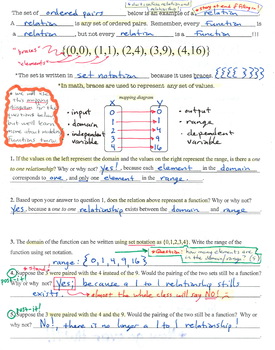 The set of ordered pairs below is an example of a relation
A relation is any set of ordered pairs. Remember, every function is
a relation, but not every relation is a function!!!
"braces" {(0,0), (1,1), (2,4), (3,9), (4,16)}
"elements"
*The set is written in set notation because it uses braces {{{{ }}}}
*In math, braces are used to represent any set of values.
mapping diagram
• input
• domain
• independent variable
0
1
2
3
4
0
1
4
9
16
• output
• range
• dependent variable
1. If the values on the left represent the domain and the values on the right represent the range, is there a one
to one relationship? Why or why not? Yes!, because each element in the domain
corresponds to one, and only one element in the range.
2. Based upon your answer to question 1, does the relation above represent a function? Why or why not?
Yes, because a one to one relationship exists between the domain and range.
*Question: how many elements are in the domain/range? (5)
3. The domain of the function can be written using set notation as {0,1,2,3,4}. Write the range of the
function using set notation.
range: {0, 1, 4, 9, 16}
4 Suppose the 3 were paired with the 4 instead of the 9. Would the pairing of the two sets still be a function?
Why or why not? Yes; because a 1 to 1 relationship still
exists. almost the whole class will say NO!
post-it!
5 Suppose the 3 were paired with the 4 and the 9. Would the pairing of the two sets be a function? Why or
why not? No!, there is no longer a 1 to 1 relationship!